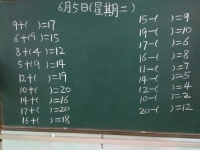 6月5日(星期二)
9+( )=17
6+(9)=15
8+(4)=12
5+(9)=14
12+( )=19
10+( )=20
14+( )=16
17+( )=20
16+( )=18
15-( )=9
19-( )=10
17-( )=6
16-( )=8
11-( )=7
14-( )=5
12-( )=4
10-( )=2
20-( )=12